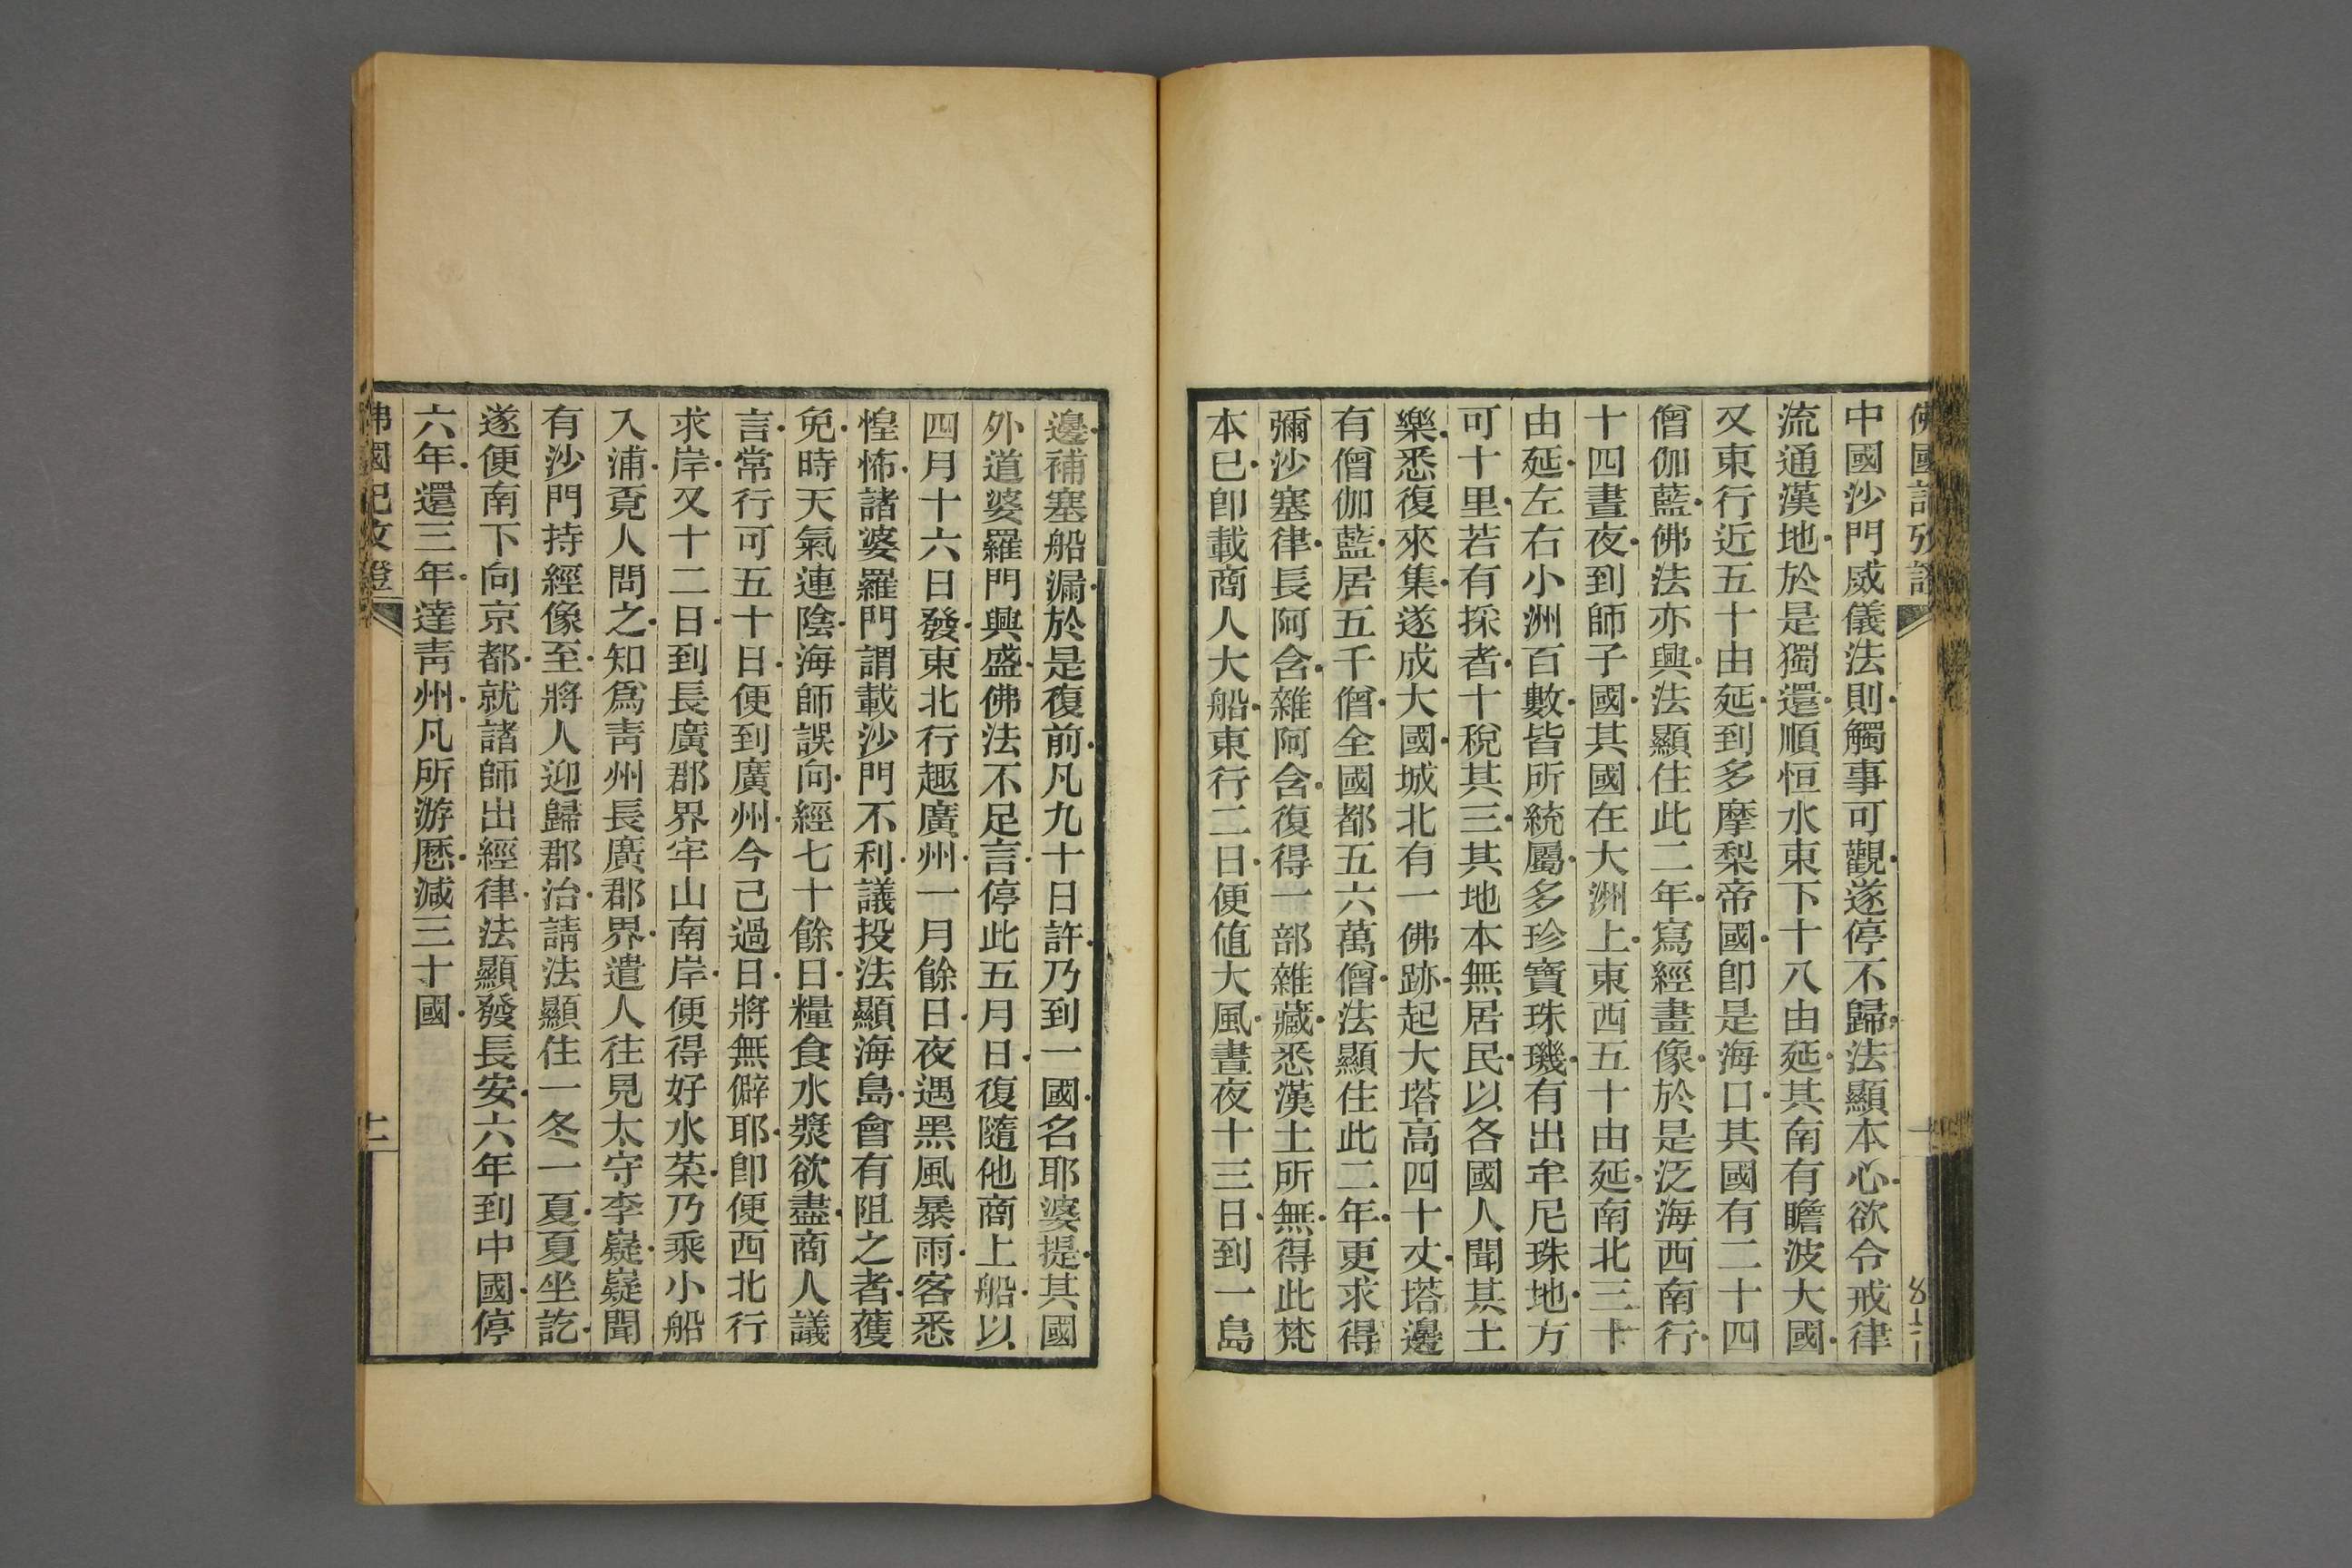 佛國記攷證
中國沙門威儀法則觸事可觀遂停不歸法顯本心欲令戒律
流通漢地於是獨還順恒水東下十八由延其南有瞻波大國
又東行近五十由延到多摩梨帝國卽是海口其國有二十四
僧伽藍佛法亦興法顯住此二年寫經畫像於是泛海西南行
十四晝夜到師子國其國在大洲上東西五十由延南北三十
由延左右小洲百數皆所統屬多珍寶珠璣有出牟尼珠地方
可十里若有採者十稅其三其地本無居民以各國人聞其土
樂悉復來集遂成大國城北有一佛跡起大塔高四十丈塔邊
有僧伽藍居五千僧全國都五六萬僧法顯住此二年更求得
彌沙塞律長阿含雜阿含復得一部雜藏悉漢土所無得此梵
本已卽載商人大船東行二日便値大風晝夜十三日到一島
邊補塞船漏於是復前凡九十日許乃到一國名耶婆提其國
外道婆羅門興盛佛法不足言停此五月日復隨他商上船以
四月十六日發東北行趣廣州一月餘日夜遇黑風暴雨客悉
惶怖諸婆羅門謂載沙門不利議投法顯海島會有阻之者獲
免時天氣連陰海師誤向經七十餘日糧食水漿欲盡商人議
言常行可五十日便到廣州今己過日將無僻耶卽便西北行
求岸又十二日到長廣郡界牢山南岸便得好水菜乃乘小船
入浦覓人問之知爲靑州長廣郡界遣人往見太守李嶷嶷聞
有沙門持經像至將人迎歸郡治請法顯住一冬一夏夏坐訖
遂便南下向京都就諸師出經律法顯發長安六年到中國停
六年還三年達靑州凡所游歷減三十國
佛國記攷證
十一